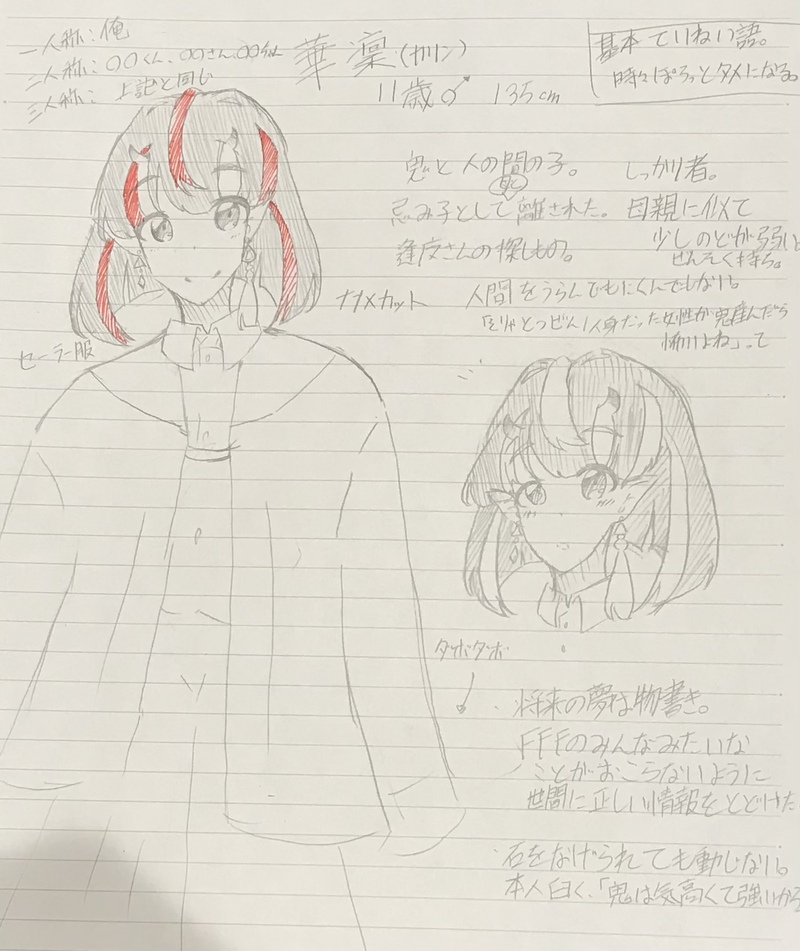 一人称:俺
二人称:〇〇くん、〇〇さん、〇〇
三人称:上記と同じ
華凜(カリン)
11歳♂ 135cm
基本ていねい語。
時々ぽろっとタメになる。
鬼と人の間の子。
忌み子として離された。
さんの探しもの。
しっかり者。
母親に似て
少しのどが弱い
ぜんそく持ち。
人間をうらんでもにくんでもない。
「そりゃとつぜん1人身だった女性が鬼産んだら
怖いよね」って
ナナメカット
セーラー服
ダボダボ
将来の夢は物書き。
FFFのみんなみたいな
ことがおこらないように
世間に正しい情報をとどけた
石をなげられても動じない。
本人曰く、「鬼は気高くて強いから